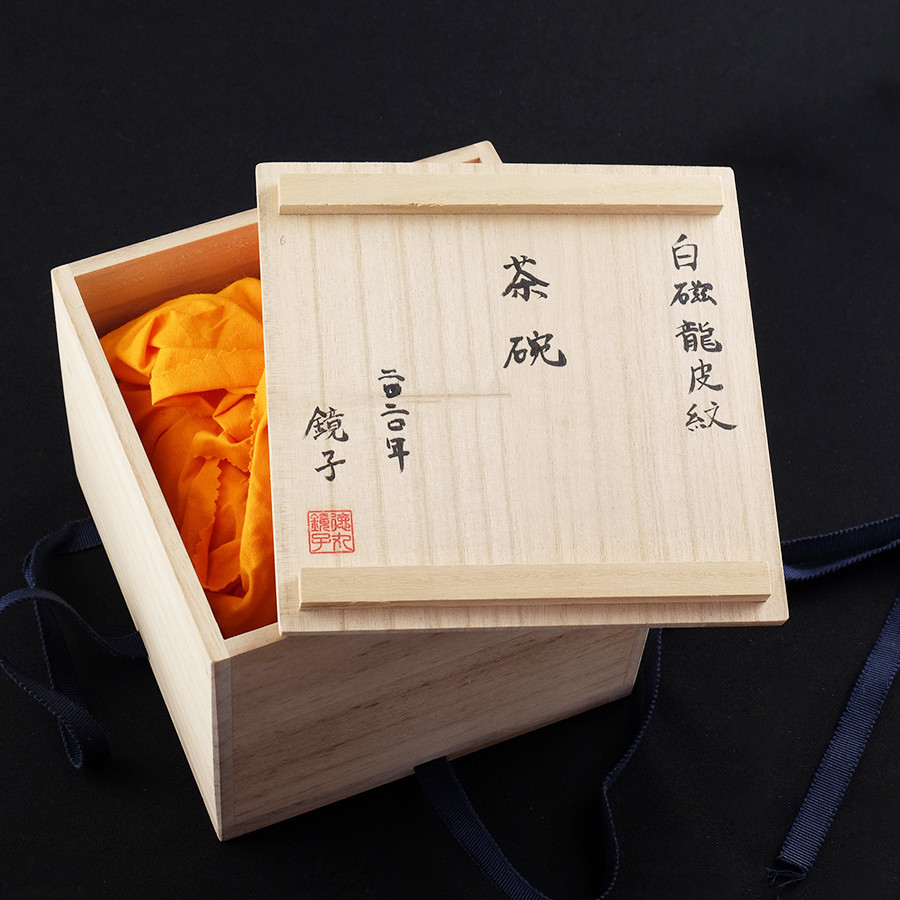 白磁龍皮紋
茶碗
二〇二〇年
鏡子
德丸
鏡子